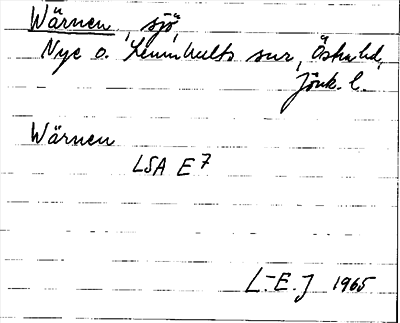 Wärnen, sjö,
Nye o. Lemnhults snr, Östra hd,
Jönk. l.
Wärnen
LSA E7
L-E. J 1965